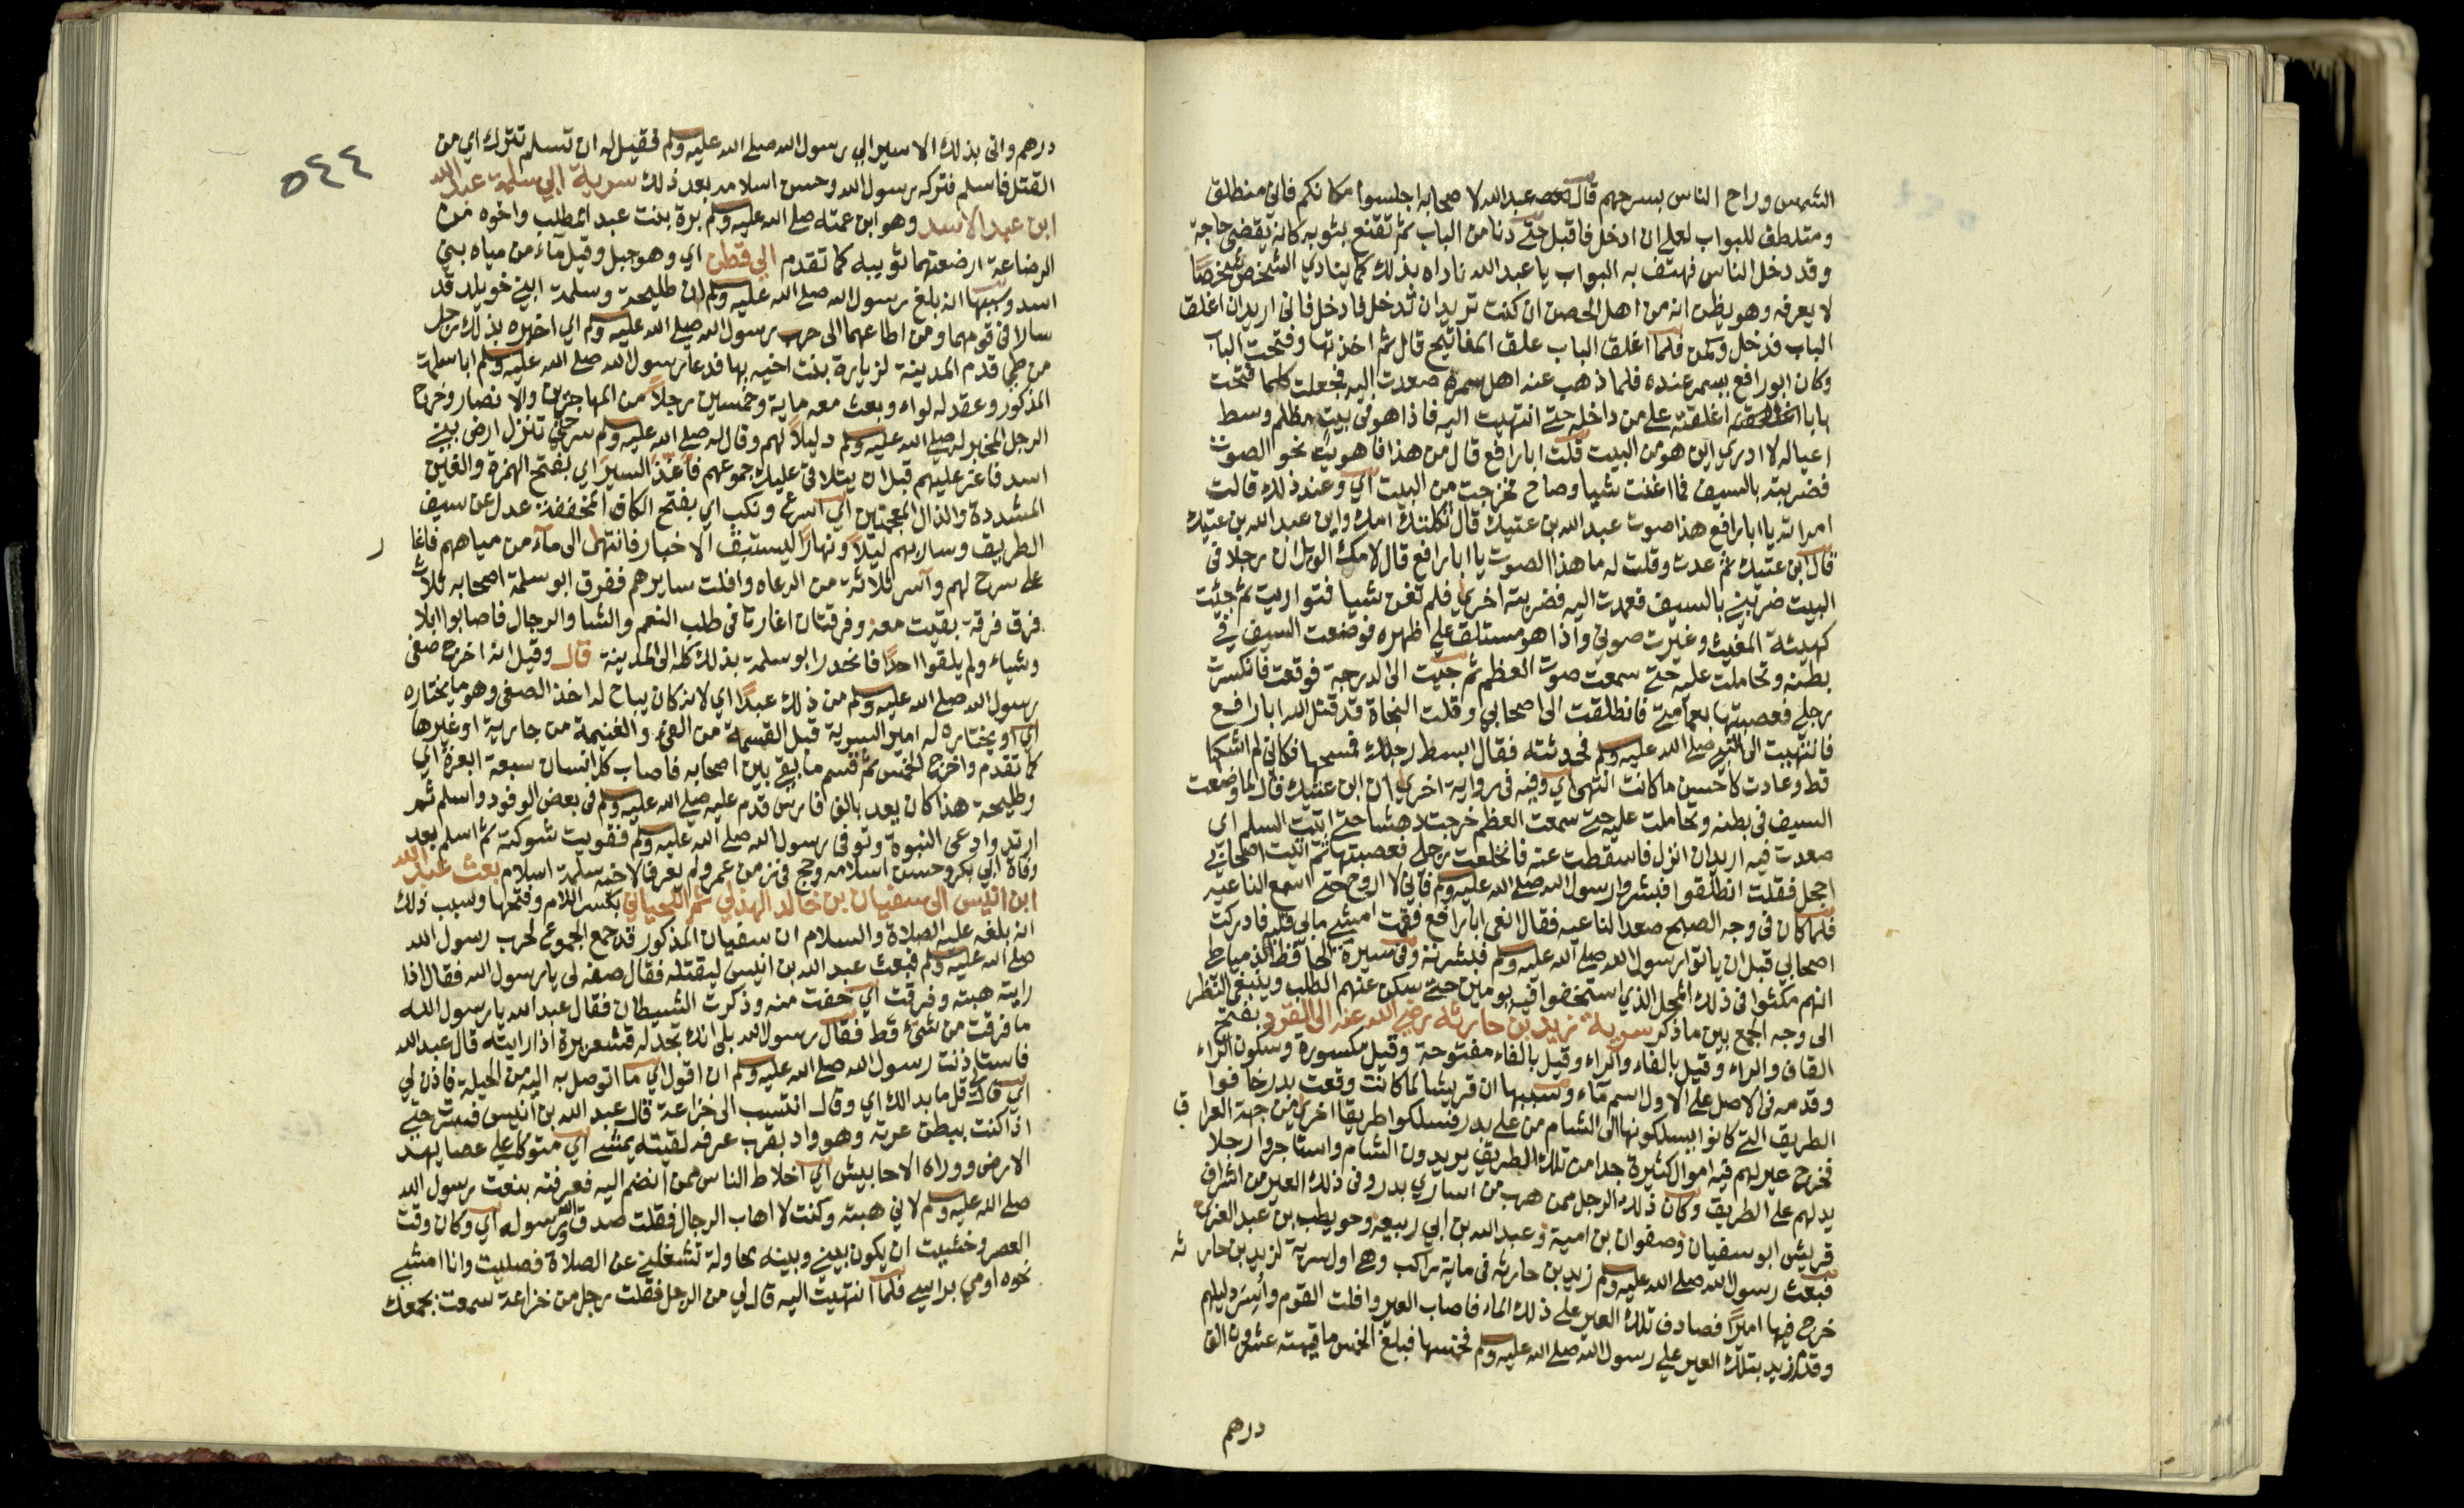 الشمس وراح الناس بسرحهم قال عبد الله لا صحابه اجلسوا مكانكم فاني منطلق
ومتلطف للبواب لعلي ان ادخل فاقبل حتى دنا من الباب ثم تقنع بثوبه كانه يقضي حاجة
وقد دخل الناس فهتف به البواب يا عبد الله ناداه بذلك كما ينادي الشخص شخصا
لا يعرفه وهو يظن انه من اهل الحصن ان كنت تريد ان تدخل فادخل فاني اريد ان اغلق
الباب فدخل وكمن فلما اغلق الباب علق المفاتيح قال ثم اخذتها وفتحت الباب
وكان ابو رافع يسمر عنده فلما ذهب عنه اهل سمره صعدت اليه فجعلت كلما فتحت
بابا اغلقته على من داخله حتى انتهيت اليه فاذا هو في بيت مظلم وسط
عياله لا ادري اين هو من البيت قلت ابا رافع قال من هذا فاهويت نحو الصوت
فضربته بالسيف فما اغنت شيا وصاح فخرجت من البيت اي وعند ذلك قالت
امراته يا ابا رافع هذا صوت عبد الله بن عتيك قال ثكلتك امك واين عبد الله بن عتيك
قال ابن عتيك ثم عدت وقلت له ما هذا الصوت يا ابا رافع قال لامك الويل ان رجلا في
البيت ضربني بالسيف فعمدت اليه فضربته اخري فلم تغن شيا فتواريت ثم جئت
كهيئة المغيث وغيرت صوتي واذا هو مستلق على ظهره فوضعت السيف في
بطنه وتحاملت عليه حتى سمعت صوت العظم ثم جيت الى الدرجة فوقعت فانكسرت
رجلي فعصبتها بعمامتي فانطلقت الى اصحابي وقلت النجاة قد قتل الله ابا رافع
فانتهيت الى النبي صلى الله عليه وسلم فحدثته فقال ابسط رجلك فمسحها فكاني لم اشتكها
قط وعادت كاحسن ما كانت انتهى اي وفيه في رواية اخري ان ابن عتيك قال لما وضعت
السيف في بطنه وتحاملت عليه حتى سمعت العظم خرجت دهشا حتى اتيت السلم اي
صعدت فيه اريد ان انزل فاسقطت عنه فانخلعت رجلي فعصبتها ثم اتيت اصحابي
احجل فقلت انطلقوا فبشروا رسول الله صلى الله عليه وسلم فاني لا اروح حتى اسمع الناعيه
فلما كان في وجه الصبح صعد الناعيه فقال انعي ابا رافع فقمت امشي ما بي قلبه فادركت
اصحابي قبل ان ياتوا رسول الله صلى الله عليه وسلم فبشرته وفي سيرة الحافظ الدمياطي
انهم مكثوا في ذلك المحل الذي استخفوا فيه يومين حتى سكن عنهم الطلب وينبغي النظر
الى وجه الجمع بين ما ذكر سرية زيد بن حارثه رضي الله عنه الى القردة بفتح
القاف والراء وقيل بالفاء والراء وقيل بالفاء مفتوحة وقيل مكسورة وسكون الراء
وقدمه في الاصل على الاول اسم ماء وسببها ان قريشا لما كانت وقعت بدر خافوا
الطريق التي كانوا يسلكونها الى الشام من على بدر فسلكوا طريقا اخري من جهة العراق
فخرج عير لهم فيه اموال كثيرة جدا من تلك الطريق يريدون الشام واستاجروا رجلا
يدلهم على الطريق وكان ذلك الرجل ممن هرب من اساري بدر وفي ذلك العير من اشراف
قريش ابو سفيان وصفوان بن امية وعبد الله بن ابي ربيعه وحويطب بن عبد العزي
فبعث رسول الله صلى الله عليه وسلم زيد بن حارثه في ماية راكب وهي اول سرية لزيد بن حارثه
خرج فيها اميرا فصادف تلك العير على ذلك الماء فاصاب العير وافلت القوم وأسر دليلهم
وقدم زيد بتلك العير على رسول الله صلى الله عليه وسلم فخمسها فبلغ الخمس ما قيمته عشرون الف
درهم
٥٤٤
درهم واتى بذلك الاسير الى رسول الله صلى الله عليه وسلم فقيل له ان تسلم تترك اي من
القتل فاسلم فتركه رسول الله وحسن اسلامه بعد ذلك سرية ابي سلمة عبد الله
ابن عبد الاسد وهو ابن عمته صلى الله عليه وسلم برة بنت عبد المطلب واخوه من
الرضاعة ارضعتهما ثويبه كما تقدم الى قطن اي وهو جبل وقيل ماء من مياه بني
اسد وسببها انه بلغ رسول الله صلى الله عليه وسلم ان طليحة وسلمة ابني خويلد قد
سارا في قومهما ومن اطاعهما الى حرب رسول الله صلى الله عليه وسلم اي اخبره بذلك رجل
من طي قدم المدينة لزيارة بنت اخيه بها فدعا رسول الله صلى الله عليه وسلم ابا سلمة
المذكور وعقد له لواء وبعث معه ماية وخمسين رجلا من المهاجرين والانصار وخرج
الرجل المخبر له صلى الله عليه وسلم دليلا لهم وقال له صلى الله عليه وسلم سر حتى تنزل ارض بني
اسد فاغر عليهم قبل ان يتلاقى عليك جموعهم فاغذ السير اي بفتح الهمزة والغين
المشددة والذال المعجمتين اي اسرع ونكب اي بفتح الكاف المخففة عدل عن سيف
الطريق وسار بهم ليلا ونهارا ليستبق الاخبار فانتهى الى ماء من مياههم فاغار
على سرح لهم وآسر ثلاثة من الرعاه وافلت سايرهم ففرق ابو سلمة اصحابه ثلاث
فرق فرقة بقيت معه وفرقتان اغارتا في طلب النعم والشا والرجال فاصابوا ابلا
وشياء ولم يلقوا احدا فانحدر ابو سلمة بذلك كله الى المدينة قال وقيل انه اخرج صفي
رسول الله صلى الله عليه وسلم من ذلك عبدا اي لانه كان يباح له اخذ الصفي وهو ما يختاره
اي او يختاره له امير السرية قبل القسمة من الفيء والغنيمة من جارية او غيرها
كما تقدم واخرج الخمس ثم قسم ما بقي بين اصحابه فاصاب كل انسان سبعة ابعرة اي
وطليحة هذا كان يعد بالف فارس قدم عليه صلى الله عليه وسلم في بعض الوفود واسلم ثم
ارتد وادعى النبوة وتوفي رسول الله صلى الله عليه وسلم فقويت شوكته ثم اسلم بعد
وفاة ابي بكر وحسن اسلامه وحج في زمن عمر ولم يعرف لاخيه سلمة اسلام بعث عبد الله
ابن انيس الى سفيان بن خالد الهذلي ثم اللحياني بكسر اللام وفتحها وسبب ذلك
انه بلغه عليه الصلاة والسلام ان سفيان المذكور قد جمع الجموع لحرب رسول الله
صلى الله عليه وسلم فبعث عبد الله بن انيس ليقتله فقال صفه لي يا رسول الله فقال اذا
رايته هبته وفرقت اي خفت منه وذكرت الشيطان فقال عبد الله يا رسول الله
ما فرقت من شيء قط فقال رسول الله بلى انك تجد له قشعريرة اذا رايته قال عبد الله
فاستاذنت رسول الله صلى الله عليه وسلم ان اقول اي ما اتوصل به اليه من الحيلة فاذن لي
اي قال لي قل ما بدا لك اي وقال انتسب الى خزاعة قال عبد الله بن انيس فسرت حتى
اذا كنت ببطن عرنه وهو واد بقرب عرفه لقيته يمشي اي متوكئا على عصا يهد
الارض ووراه الاحابيش اي اخلاط الناس ممن انضم اليه فعرفته بنعت رسول الله
صلى الله عليه وسلم لاني هبته وكنت لا اهاب الرجال فقلت صدق الله ورسوله اي وكان وقت
العصر وخشيت ان يكون بيني وبينه محاولة تشغلني عن الصلاة فصليت وانا امشي
نحوه اومي براسي فلما انتهيت اليه قال لي من الرجل فقلت رجل من خزاعة سمعت بجمعك